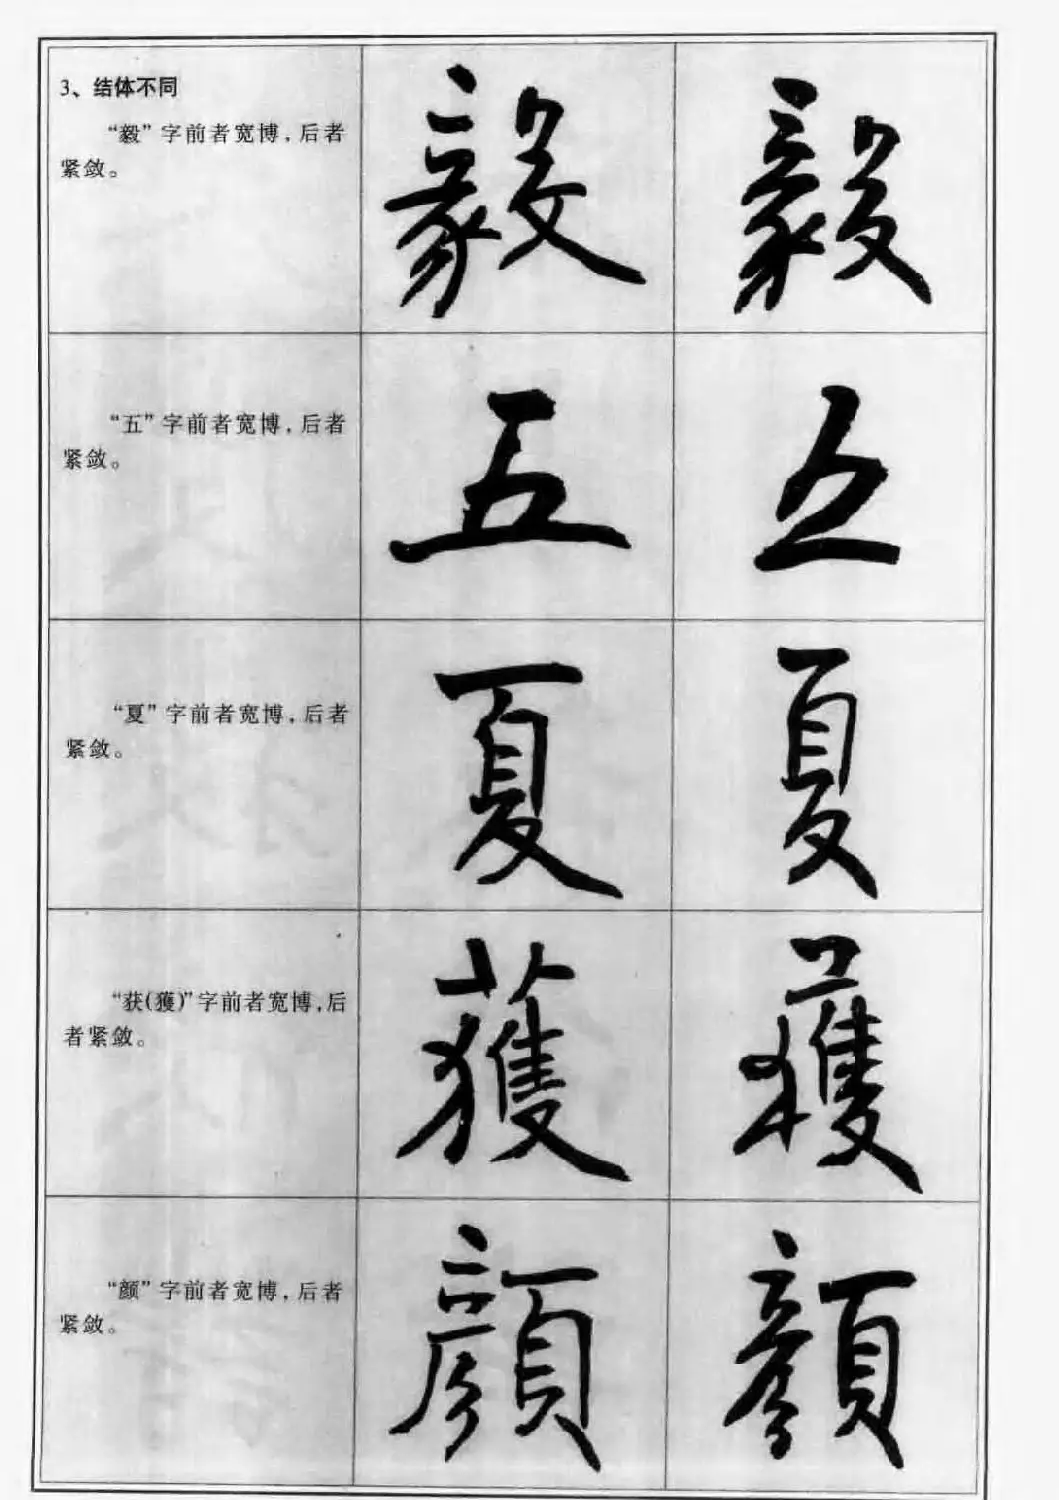 3、结体不同
“毅”字前者宽博，后者
紧敛。
毅 毅
“五”字前者宽博，后者
紧敛。
五 五
“夏”字前者宽博，后者
紧敛。
夏 夏
“获(獲)”字前者宽博，后
者紧敛。
獲 獲
“颜”字前者宽博，后者
紧敛。
顔 顔